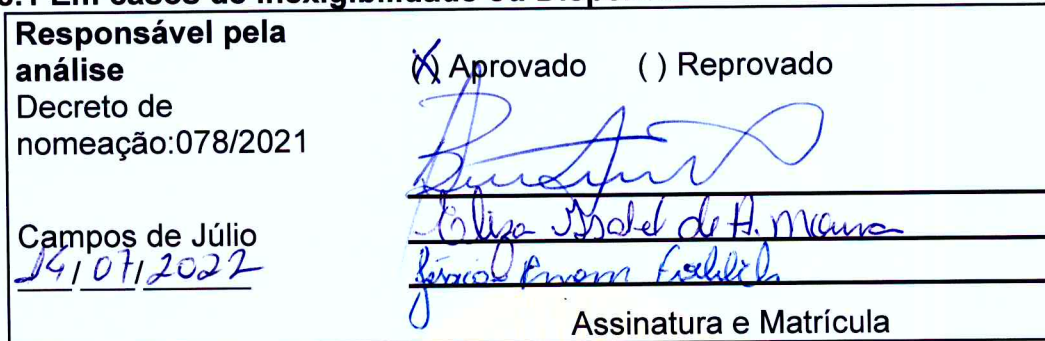 Responsável pela
análise
Decreto de
nomeação:078/2021
Campos de Júlio
14/07/2022
(X) Aprovado ( ) Reprovado
Eliza Isabel de A. Moura
Assinatura e Matrícula